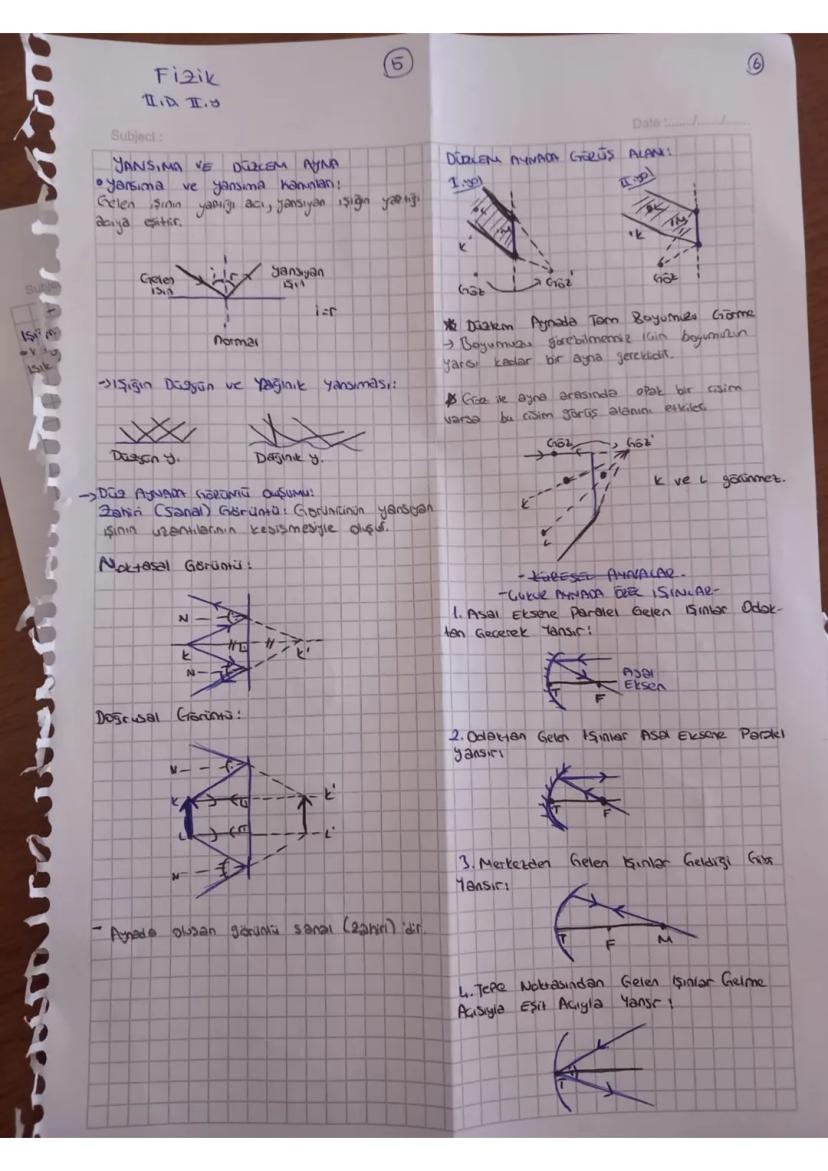 Fizik
II.D. II.y
5
Subject :
YANSIMA VE DÜZLEM AYNA
• Yansıma ve yansıma kanunları:
Gelen ışının yaptığı açı, yansıyan ışığın yaptığı
açıya eşittir.
Gelen ışın
Yansıyan ışın
i r
i=r
Normal
→ Işığın Düzgün ve Dağınık Yansıması:
Düzgün y. Dağınık y.
→ Düz AYNADA GÖRÜNTÜ OLUŞUMU:
Zahiri (Sanal) Görüntü: Görüntünün yansıyan
ışının uzantılarının kesişmesiyle oluşur.
Noktasal Görüntü:
N
K K'
N
Doğrusal Görüntü:
N
K K'
L L'
N
- Aynada oluşan görüntü sanal (zahiri)'dir.
6
Date :....../....../......
DÜZLEM AYNADA GÖRÜŞ ALANI:
I.yol II.yol
K
Göz Göz'
K
Göz
* Düzlem Aynada Tam Boyumuzu Görme
→ Boyumuzu görebilmemiz için boyumuzun
yarısı kadar bir ayna gereklidir.
* Göz ile ayna arasında opak bir cisim
varsa bu cisim görüş alanını etkiler.
Göz Göz'
K
L
K ve L görünmez.
- KÜRESEL AYNALAR -
- ÇUKUR AYNADA ÖZEL IŞINLAR -
1. Asal Eksene Paralel Gelen Işınlar Odak-
tan Geçerek Yansır:
T F Asal Eksen
2. Odaktan Gelen Işınlar Asal Eksene Paralel
Yansır:
T F
3. Merkezden Gelen Işınlar Geldiği Gibi
Yansır:
T F M
4. Tepe Noktasından Gelen Işınlar Gelme
Açısıyla Eşit Açıyla Yansır:
T